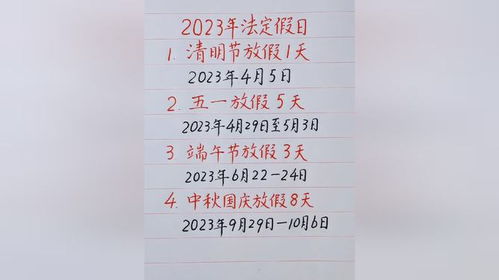 2023年法定假日
1. 清明节放假1天
2023年4月5日
2. 五一放假5天
2023年4月29日至5月3日
3 端午节放假3天
2023年6月22-24日
4. 中秋国庆放假8天
2023年9月29日-10月6日